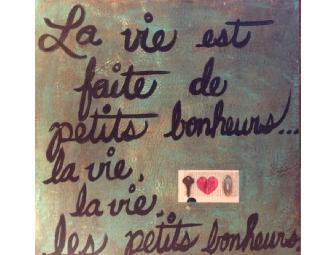 La vie est
faite de
petits bonheurs...
la vie,
la vie,
les petits bonheurs.